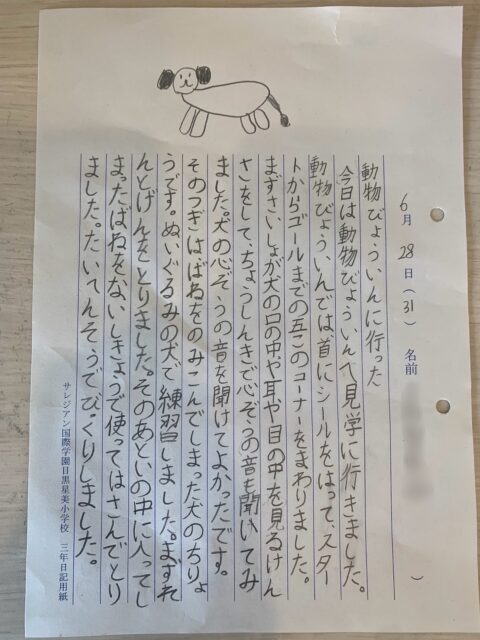 6月28日(31) 名前( )
動物びょういんに行った
今日は動物びょういんへ見学に行きました。
動物びょういんでは首にシールをはって、スター
トからゴールまでの五このコーナーをまわりました。
まずさいしょが犬の口の中や耳や目の中を見るけん
さをして、ちょうしんきで心ぞうの音も聞いてみ
ました。犬の心ぞうの音を聞けてよかったです。
そのつぎはばねをのみこんでしまった犬のちりょ
うです。ぬいぐるみの犬で練習しました。まずれ
んとげんをとりました。そのあといの中に入ってし
まったばねをないしきょうで使ってはさんでとり
ました。たいへんそうでびっくりしました。
サレジアン国際学園目黒星美小学校 三年日記用紙